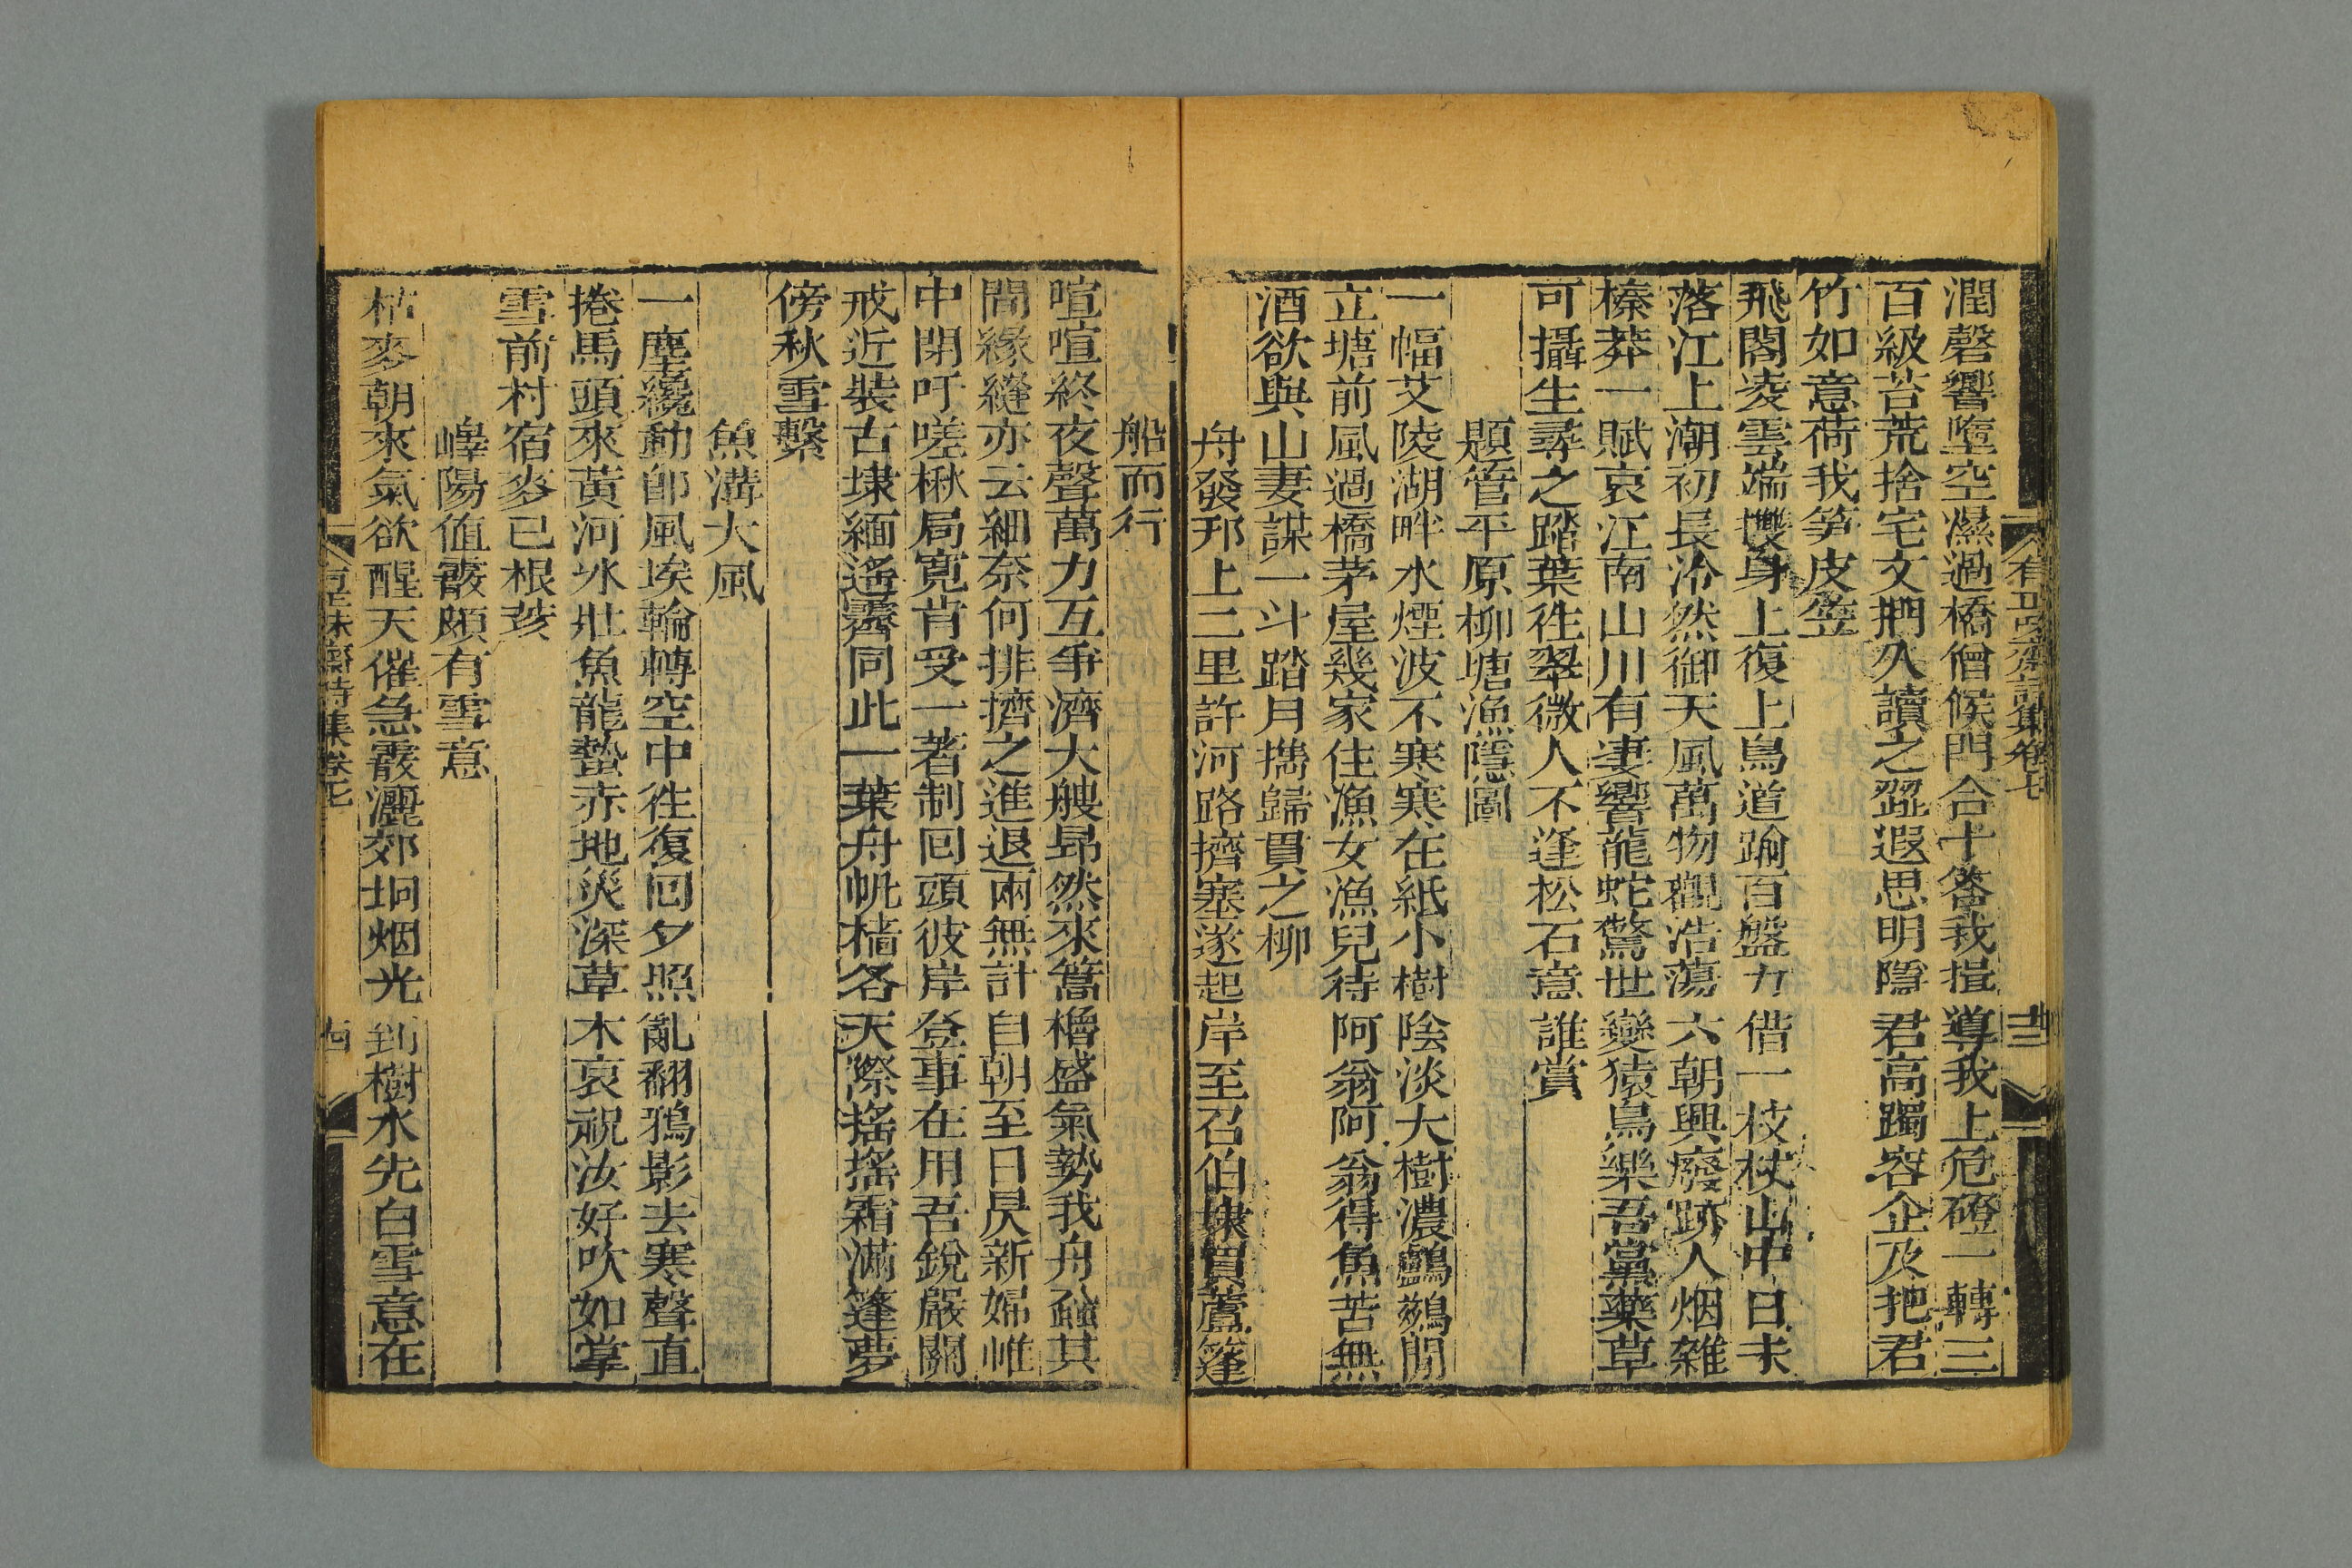 潤磬響墮空濕過橋僧候門合十答我揖導我上危磴一轉三
百級苔荒捨宅文捫久讀之澀遐思明隱君高躅容企及把君
竹如意荷我笋皮笠
飛閣凌雲端㩳身上復上鳥道踰百盤力借一枝杖山中日未
落江上潮初長泠然御天風萬物觀浩蕩六朝興廢跡人烟雜
榛莽一賦哀江南山川有悽響龍蛇驚世變猿鳥樂吾黨藥草
可攝生尋之踏葉徃翠微人不逢松石意誰賞
題管平原柳塘漁隱圖
一幅艾陵湖畔水煙波不寒寒在紙小樹陰淡大樹濃鸕鷀閒
立塘前風過橋茅屋幾家住漁女漁兒待阿翁阿翁得魚苦無
酒欲與山妻謀一斗踏月擕歸貫之柳
舟發邗上二里許河路擠塞遂起岸至召伯埭買蘆篷
船而行
喧喧終夜聲萬力互爭濟大艘昻然來篙櫓盛氣勢我舟矙其
間緣縫亦云細奈何排擠之進退兩無計自朝至日昃新婦帷
中閉吁嗟楸局寬肯受一著制回頭彼岸登事在用吾銳嚴關
戒近裝古埭緬遙霽同此一葉舟帆檣各天際搖搖霜滿篷夢
傍秋雪繫
魚溝大風
一塵纔動卽風埃輪轉空中徃復回夕照亂翻鴉影去寒聲直
捲馬頭來黃河氷壯魚龍蟄赤地災深草木哀祝汝好吹如掌
雪前村宿麥已根荄
嶧陽值霰頗有雪意
枯麥朝來氣欲醒天催急霰灑郊坰烟光到樹水先白雪意在